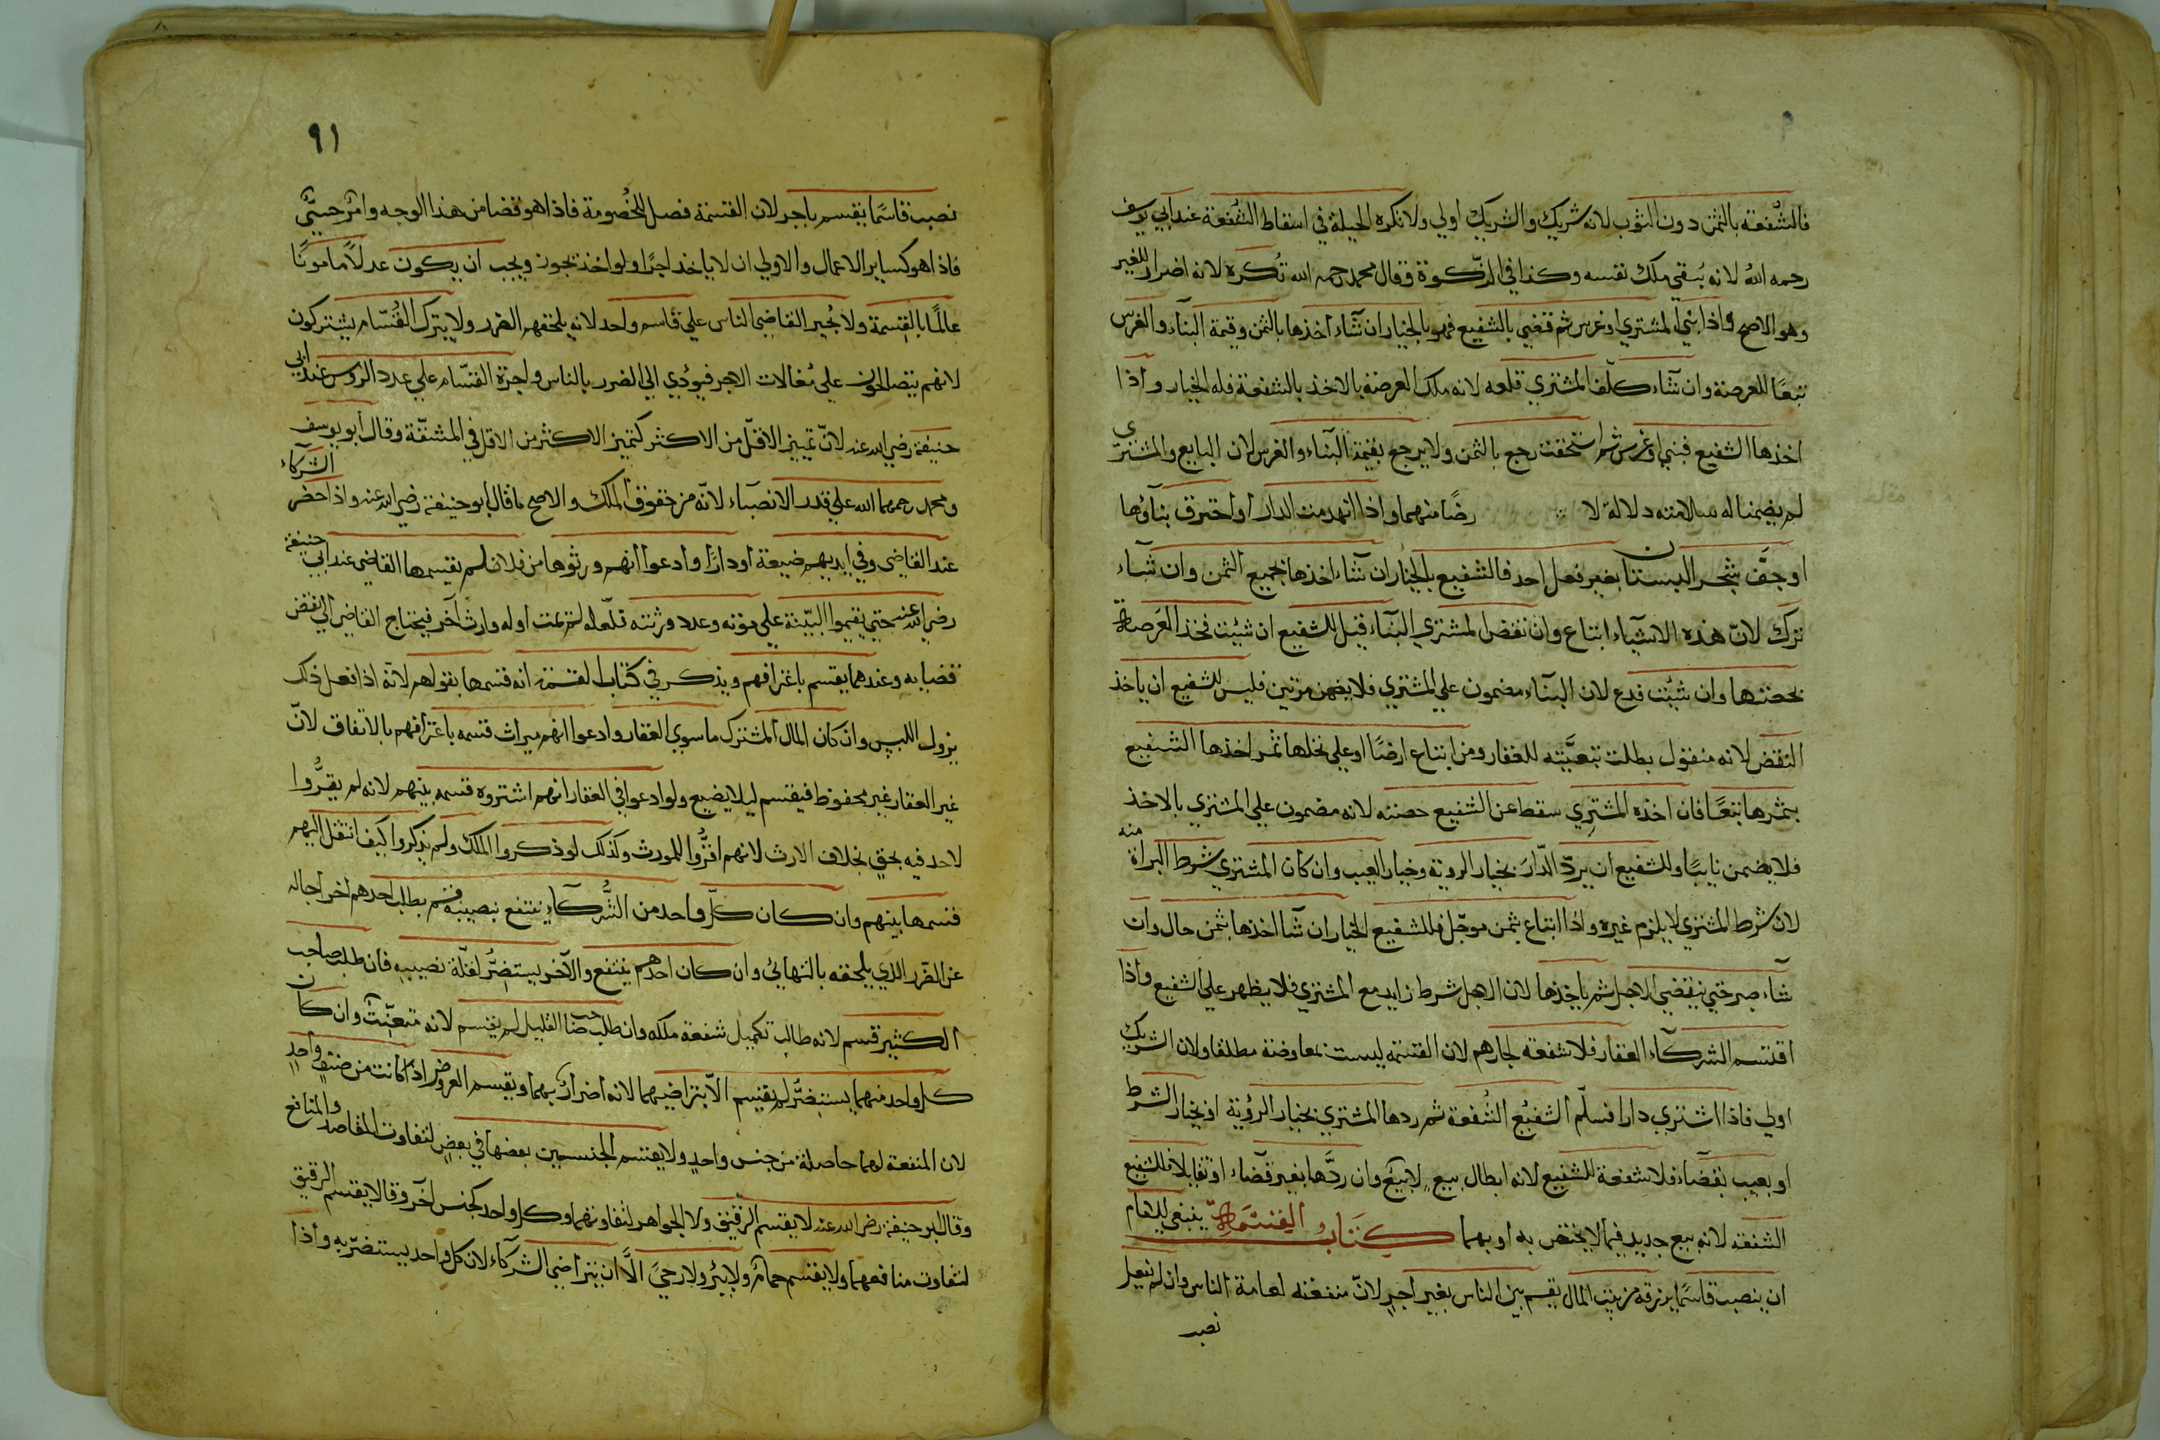 فالشفعة بالثمن دون الثوب لانه شريك والشريك اولي ولا تكره الحيلة في اسقاط الشفعة عند ابي يوسف
رحمه الله لانه يبقي ملك نفسه وكذا في الزكوة وقال محمد رحمه الله تكره لانه اضرار للغير
وهو الاصح واذا بني المشتري او غرس ثم قضي بالشفيع فهو بالخيار ان شاء اخذها بالثمن وقيمة البناء والغرس
تبعا للعرصة وان شاء كلف المشتري قلعه لانه ملك العرصة بالاخذ بالشفعة فله الخيار واذا
اخذها الشفيع فبني او غرس ثم استحقت رجع بالثمن ولا يرجع بقيمة البناء والغرس لان البايع والمشتري
لم يضمنا له سلامته دلالة لا رضا منهما واذا انهدمت الدار او احترق بناؤها
او جف شجر البستان بغير فعل احد فالشفيع بالخيار ان شاء اخذها بجميع الثمن وان شاء
ترك لان هذه الاشياء اتباع وان نقض المشتري البناء قيل للشفيع ان شئت فخذ العرصة
بحصتها وان شئت فدع لان البناء مضمون علي المشتري فلا يضمن مرتين فليس للشفيع ان ياخذ
النقض لانه منقول بطلت تبعيته للعقار ومن ابتاع ارضا او علي نخلها ثمر اخذها الشفيع
بثمرها تبعا فان اخذه المشتري سقط عن الشفيع حصته لانه مضمون علي المشتري بالاخذ
فلا يضمن نايبا وللشفيع ان يرد الدار بخيار الروية وخيار العيب وان كان المشتري شرط البراة منه
لان شرط المشتري لا يلزم غيره واذا ابتاع بثمن موجل فللشفيع الخيار ان شا اخذها بثمن حال وان
شاء صبر حتي ينقضي الاجل ثم ياخذها لان الاجل شرط زايد مع المشتري فلا يظهر علي الشفيع واذا
اقتسم الشركاء العقار فلا شفعة لجارهم لان القسمة ليست بمعاوضة مطلقا ولان الشريك
اولي فاذا اشتري دارا فسلم الشفيع الشفعة ثم ردها المشتري بخيار الرؤية او بخيار الشرط
او بعيب بقضاء فلا شفعة للشفيع لانه ابطال بيع لا بيع وان ردها بغير قضاء او تقايلا فللشفيع
الشفعة لانه بيع جديد فيما لا يختص به او بهما كتاب القسمة ينبغي للامام
ان ينصب قاسما يرزقه من بيت المال يقسم بين الناس بغير اجر لان منفعته لعامة الناس وان لم يفعل
نصب
٩١
نصب قاسما يقسم باجر لان القسمة فصل للخصومة فاذا هو قضا من هذا الوجه وامر حسي
فاذا هو كساير الاعمال والاولي ان لا ياخذ اجرا ولو اخذ يجوز ويجب ان يكون عدلا مامونا
عالما بالقسمة ولا يجبر القاضي الناس علي قاسم واحد لانه يلحقهم الضرر ولا يترك القسام يشتركون
لانهم يتصالحون علي مغالات الاجر فيؤدي الي الضرر بالناس واجرة القسام علي عدد الروس عند ابي
حنيفة رضي الله عنه لان تمييز الاقل من الاكثر كتمييز الاكثر من الاقل في المشقة وقال أبو يوسف
ومحمد رحمهما الله علي قدر الانصباء لانه من حقوق الملك والاصح ما قال ابو حنيفة رضي الله عنه واذا حضر الشركاء
عند القاضي وفي ايديهم ضيعة او دارا وادعوا انهم ورثوها من فلان لم يقسمها القاضي عند ابي حنيفة
رضي الله عنه حتي يقيموا البينة علي موته وعدد ورثته فلعله لم يمت او له وارث آخر فيحتاج القاضي الي نقض
قضا به وعندهما يقسم باعترافهم ويذكر في كتاب القسمة انه قسمها بقولهم لانه اذا فعل ذلك
يزول اللبس وان كان المال المشترك ما سوي العقار وادعوا انهم ميراث قسمه باعترافهم بالاتفاق لان
غير العقار غير محفوظ فيقتسم ليلا يضيع ولو ادعوا في العقار انهم اشتروه قسمه بينهم لانه لم يقروا
لاحد فيه بحق بخلاف الارث لانهم اقروا للمورث وكذلك لو ذكروا الملك ولم يذكروا كيف انتقل اليهم
قسمها بينهم وان كان كل واحد من الشركاء ينتفع بنصيبه قسم بطلب احدهم اخراجا له
عن الضرر الذي يلحقه بالتهايئ وان كان احدهم ينتفع والآخر يستضر لقلة نصيبه فان طلب صاحب
الكثير قسم لانه طالب تكميل شفعة ملكه وان طلب صاحب القليل لم يقسم لانه متعنت وان كان
كل واحد منهما يستضر لم يقسم الا بتراضيهما لانه اضرار بهما ويقسم العروض اذا كانت من صنف واحد
لان المنفعة لهما حاصلة من جنس واحد ولا يقتسم الجنسين بعضها في بعض لتفاوت المقاصد والمنافع
وقال ابو حنيفة رضي الله عنه لا يقسم الرقيق ولا الجواهر لتفاوتهما وكل واحد كجنس آخر وقالا يقسم الرقيق
لتفاوت منافعهما ولا يقتسم حمام ولا بئر ولا رحي الا ان يتراضي الشركاء لان كل واحد يستضر به واذا